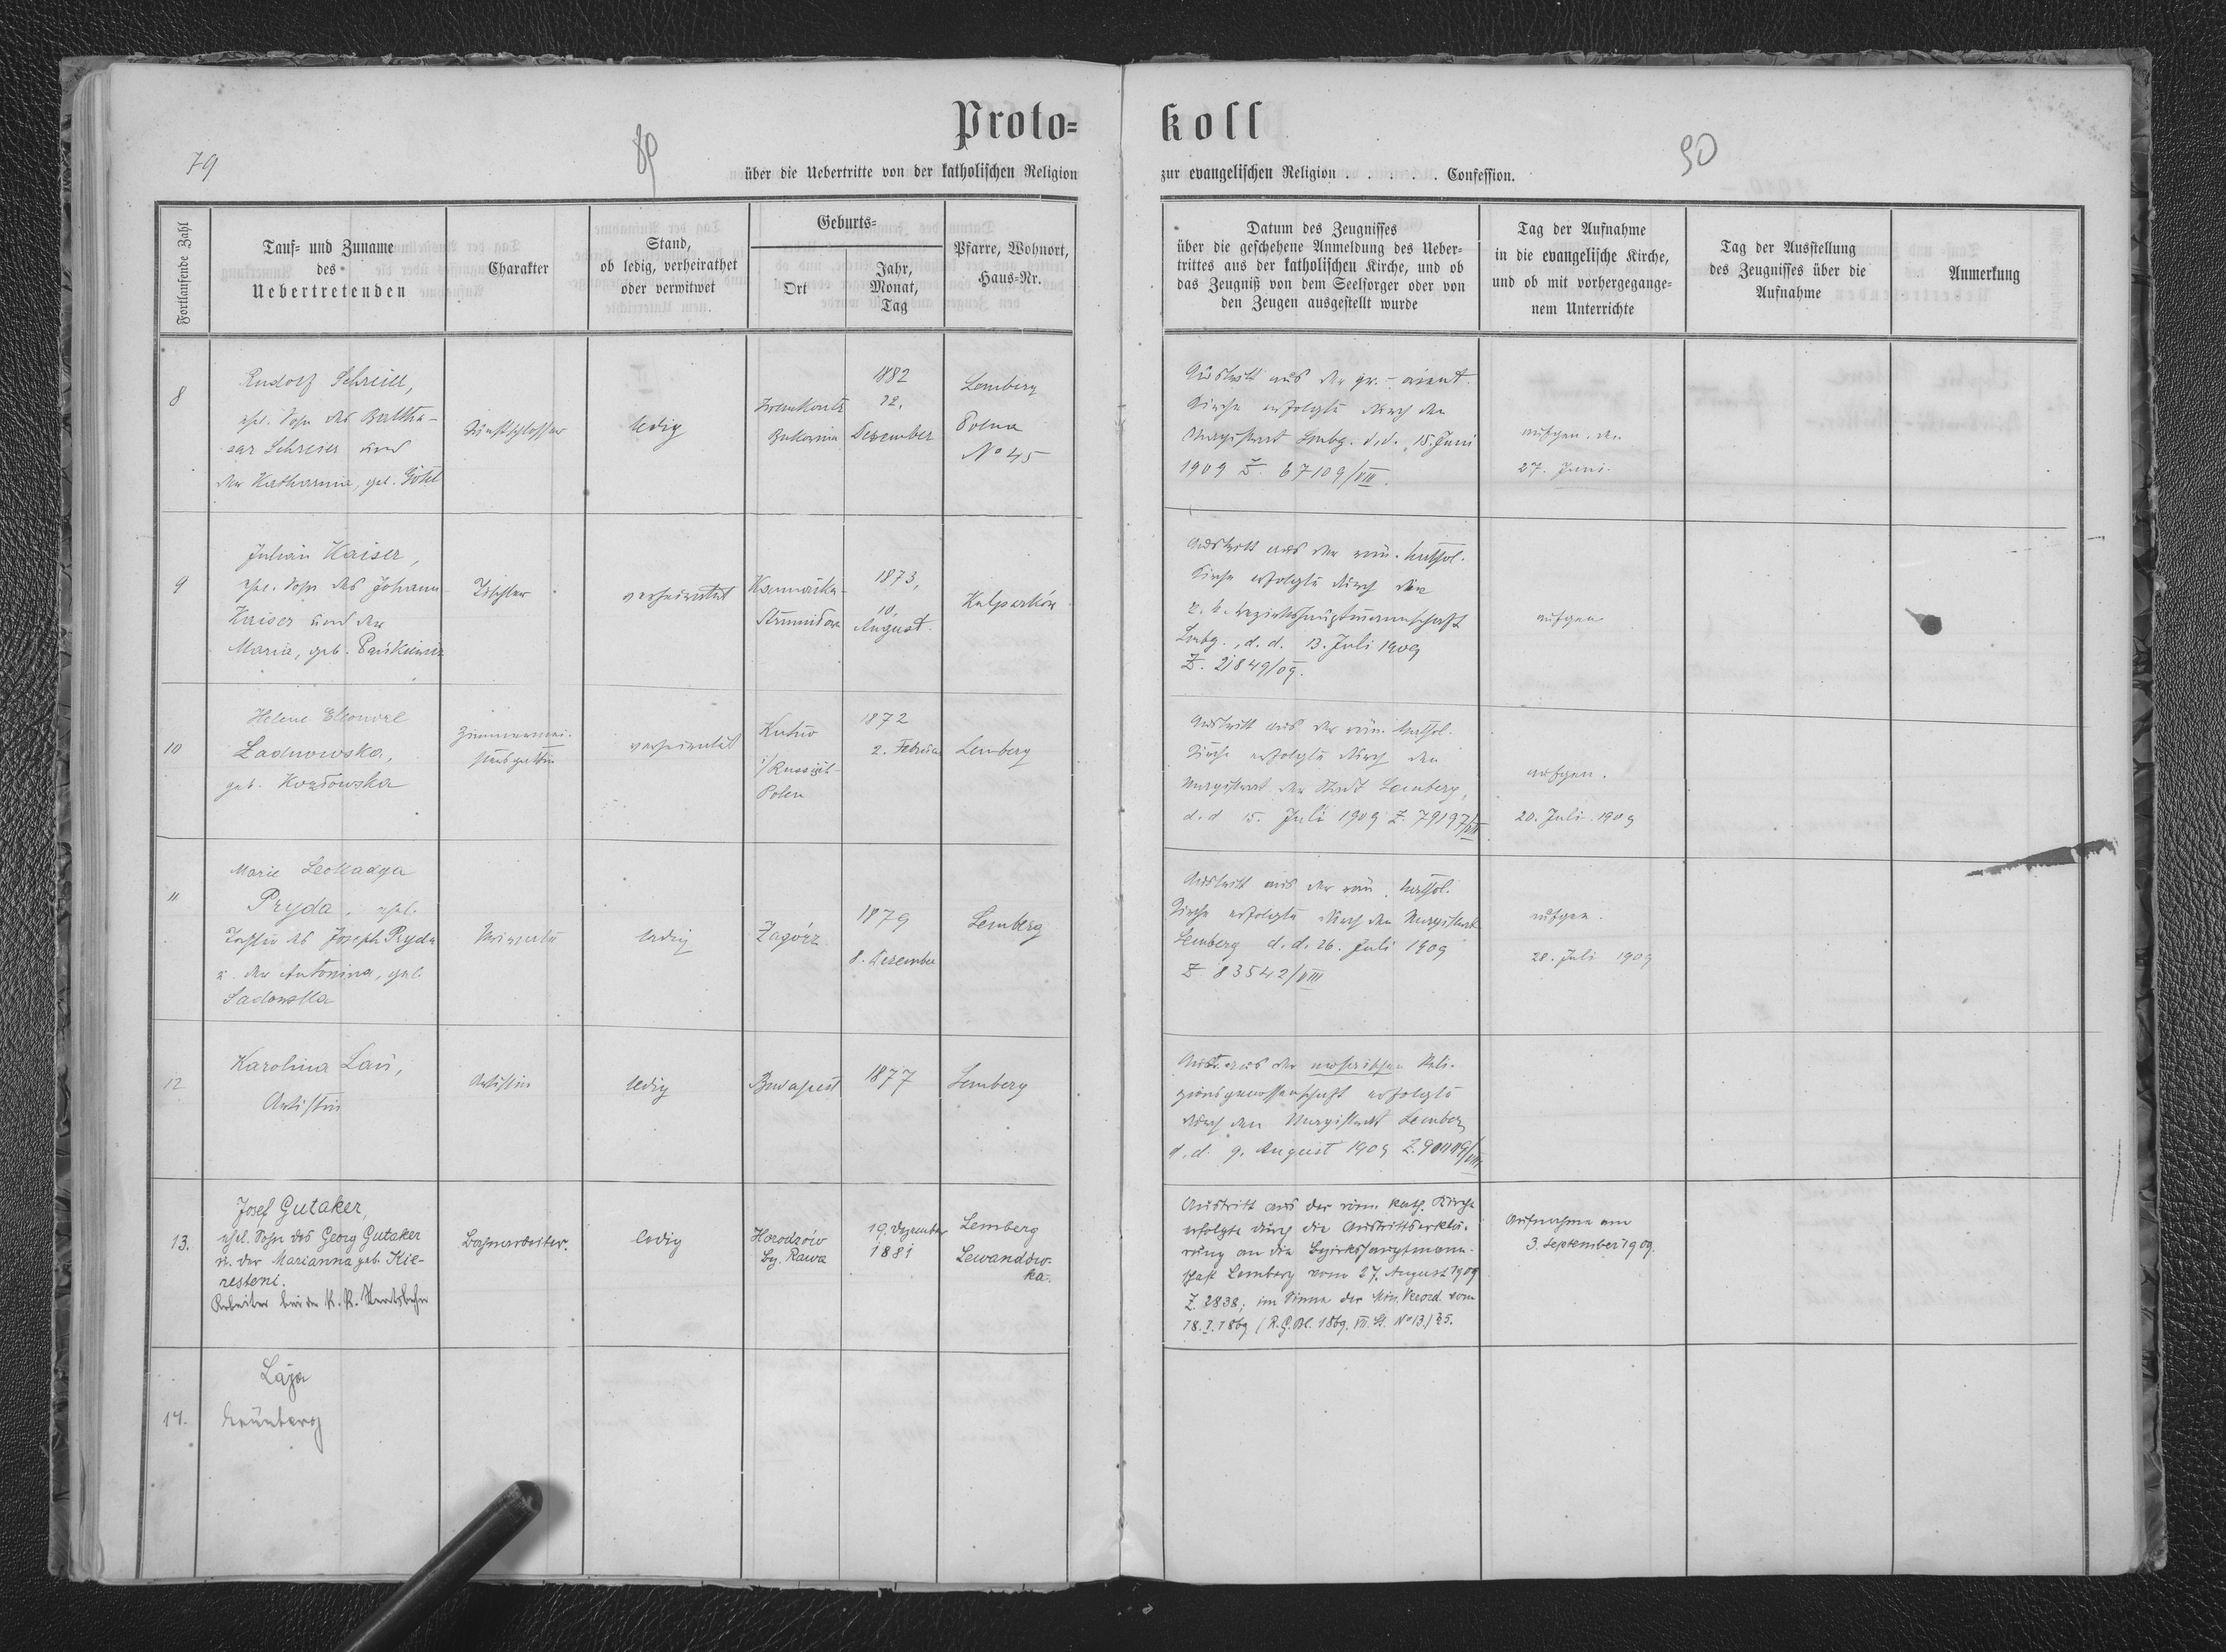 Proto-
koll
79
89
90
über die Uebertritte von der katholischen Religion
zur evangelischen Religion . . . . . . Confession.
Fortlaufende Zahl
Tauf- und Zuname
des
Uebertretenden
Charakter
Stand,
ob ledig, verheirathet
oder verwitwet
Geburts-
Ort
Jahr,
Monat,
Tag
Pfarre, Wohnort,
Haus-Nr.
Datum des Zeugnisses
über die geschehene Anmeldung des Ueber-
trittes aus der katholischen Kirche, und ob
das Zeugniß von dem Seelsorger oder von
den Zeugen ausgestellt wurde
Tag der Aufnahme
in die evangelische Kirche,
und ob mit vorhergegange-
nem Unterrichte
Tag der Ausstellung
des Zeugnisses über die
Aufnahme
Anmerkung
8
Rudolf Schreier,
ehel. Sohn des Baltha-
sar Schreier und
der Katharina, geb.
Kunstschlosser
ledig
Bukowina
1882
12.
Dezember
Lemberg
No 45
Austritt aus der gr.-orient.
Kirche erfolgte durch den
Magistrat Lmbg. d.d. 15. Juni
1909 Z. 67109/VIII.
aufgen. den
27. Juni.
9
Julian Kaiser,
ehel. Sohn des Johann
Kaiser und der
Maria, geb.
Tischler
verheiratet
1873,
10.
August.
Kulparków
Austritt aus der röm. kathol.
Kirche erfolgte durch die
k. k. Bezirkshauptmannschaft
Lmbg., d. d. 13. Juli 1909
Z. 21849/09.
aufgen
10
Helene Eleonore
Ladnowska,
geb. Kozłowska
Zimmermei-
stersgattin
verheiratet
Kutno
i/Russisch-
Polen
1872
2. Februar
Lemberg
Austritt aus der röm. kathol.
Kirche erfolgte durch den
Magistrat der Stadt Lemberg,
d. d 15. Juli 1909 Z. 79197/VIII
aufgen.
20. Juli 1909
11
Marie Leokadya
Pryda, ehel.
Tochter des Joseph Pryda
u. der Antonina, geb.
Sadowska
Private
ledig
Zagórz
1879
8. Dezember
Lemberg
Austritt aus der röm. kathol.
Kirche erfolgte durch den Magistrat
Lemberg d. d. 26. Juli 1909
Z 83542/VIII
aufgen.
28. Juli 1909
12
Karolina Lau,
Artistin
Artistin
ledig
Budapest
1877
Lemberg
Austr. aus der mosaischen Reli-
gionsgenossenschaft erfolgte
durch den Magistrat Lemberg
d. d. 9. August 1909
13.
Josef Gutaker,
ehel. Sohn des Georg Gutaker
u. der Marianna geb. Kie-
resteni.
Arbeiter bei der k. k. Staatsbahn
Bahnarbeiter.
ledig
Horodzów
Bz. Rawa
19. Dezember
1881
Lemberg
Lewandow-
ka.
Austritt aus der röm. kath. Kirche
erfolgte durch die Austrittserklä-
rung an die Bezirkshauptmann-
schaft Lemberg vom 27. August 1909
Z. 2838; im Sinne der Min. Verord. vom
18.I.1869 (R. G. Bl. 1869. VII. St. No 13.) § 5.
Aufnahme am
3. September 1909.
14.
Laja
Grünberg